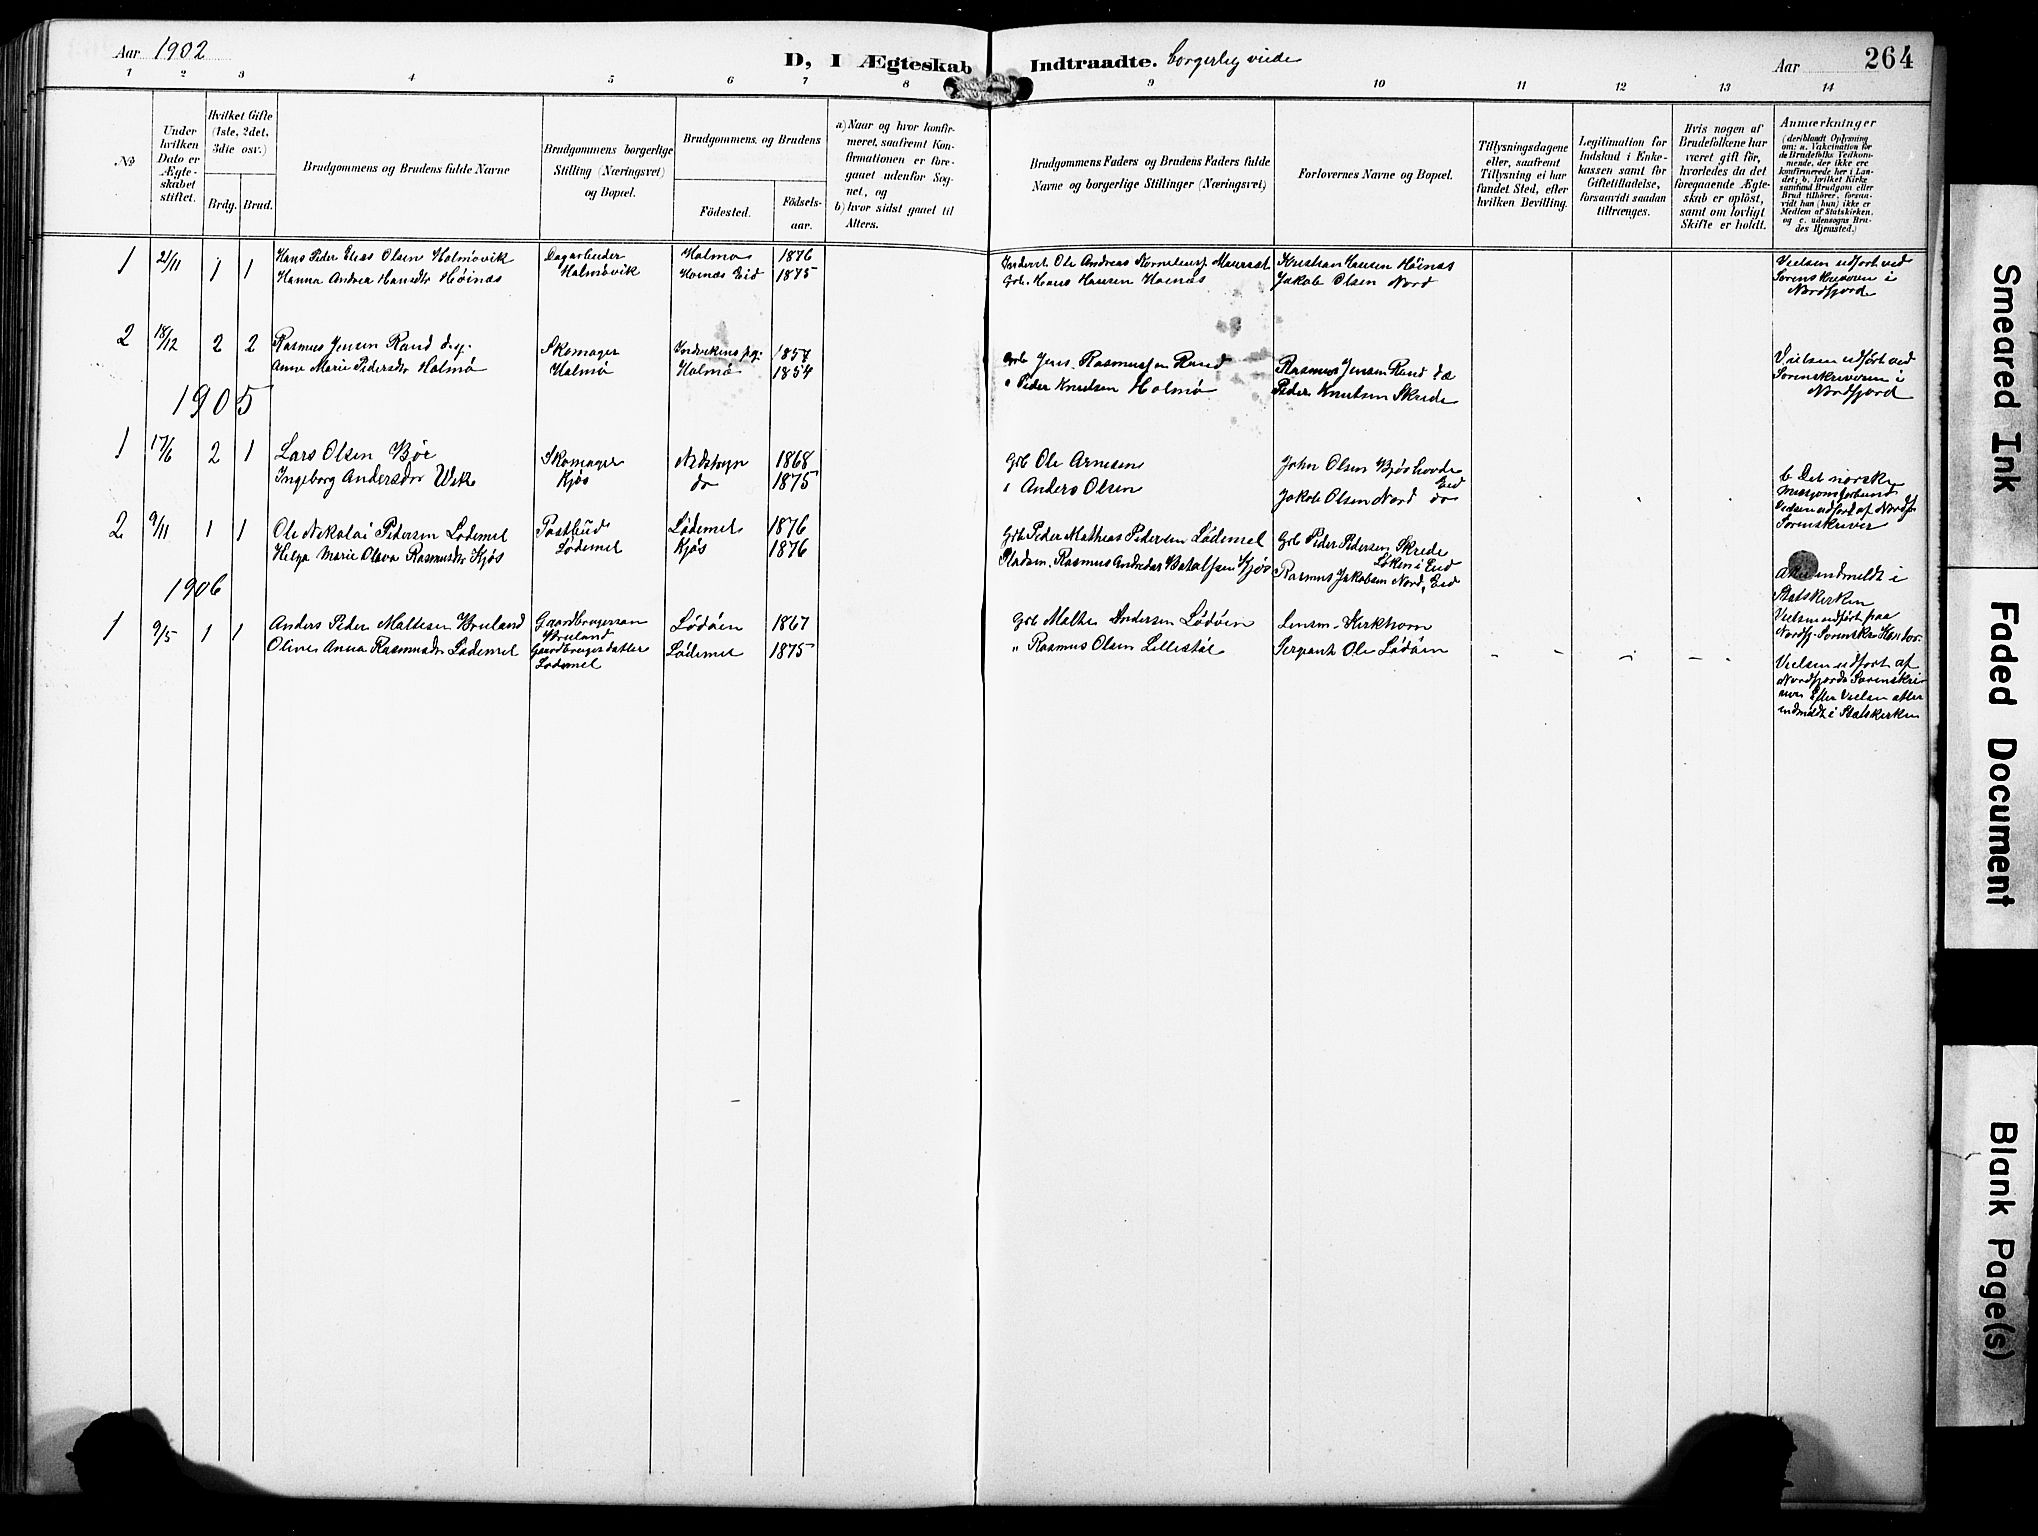 Aar 1902
D, I Ægteskab Indtraadte. borgerlig viede
Aar
264
1 2 3 4 5 6 7 8 9 10 11 12 13 14
No
Under hvilken Dato er Ægteskabet stiftet.
Hvilket Gifte (1ste, 2det, 3die osv.)
Brdg. Brud.
Brudgommens og Brudens fulde Navne
Brudgommens borgerlige Stilling (Næringsvei) og Bopæl.
Brudgommens og Brudens
Födested.
Födselsaar.
a) Naar og hvor konfirmeret, saafremt Konfirmationen er foregaaet udenfor Sognet, og
b) hvor sidst gaaet til Alters.
Brudgommens Faders og Brudens Faders fulde Navne og borgerlige Stillinger (Næringsvei)
Forlovernes Navne og Bopæl.
Tillysningsdagene eller, saafremt Tillysning ei har fundet Sted, efter hvilken Bevilling.
Legitimation for Indskud i Enkekassen samt for Giftetilladelse, forsaavidt saadan tiltrænges.
Hvis nogen af Brudefolkene har været gift för, hvorledes da det foregaaende Ægteskab er oplöst, samt om lovligt Skifte er holdt.
Anmærkninger
(deriblandt Oplysning om: a. Vakcination for de Brudefolks Vedkommende, der ikke ere konfirmerede her i Landet; b. hvilket Kirkesamfund Brudgom eller Brud tilhörer, forsaavidt han (hun) ikke er Medlem af Statskirken, og c. udensogns Brudes Hjemsted.)
1 21/11 1 1 Hans Peder Elias Olsen Holmøvik Dagarbeider Holmø 1876 Ole Andreas Mauraset Kristian Hansen Høinæs Vielsen udført ved
Hanna Andrea Hansdtr Høinæs Holmøvik Hoinæs Eid 1875 Grb. Hans Hansen Hoinæs Jakob Olsen Nord Sorenskriveren i
Nordfjord
2 18/12 2 2 Rasmus Jensen Rand d.y. Skomager 1857 Grb Jens Rasmussen Rand Rasmus Jensen Rand d.æ Vielsen udført ved
Anne Marie Pedersdtr Holmø Holmø Holmø 1854 " Peder Knutsen Holmø Peder Knutsen Skrede Sorenskriveren i
Nordfjord
1905
1 17/6 2 1 Lars Olsen Bøe Skomager Nedstryn 1868 Grb Ole Arnesen John Olsen Bjøshovde
Ingeborg Andersdtr Wik Kjøs do 1875 " Anders Olsen Eid b. Det norske
Jakob Olsen Nord do Missionsforbund
Vielsen udført af Nordfj.
2 9/11 1 1 Ole Nikolai Pedersen Lødemel Postbud Lødemel 1876 Grb Peder Mathias Pedersen Lødemel Grb Peder Pedersen Skrede Sorenskriver
Helga Marie Olava Rasmusdtr Kjøs Lødemel Kjøs 1876 Pladsm. Rasmus Andreas Batalfsen Kjøs Løken i Eid
Rasmus Jakobsen Nord, Eid
1906 Atter indmeldt i
Statskirken
Vielsen udført paa
1 9/5 1 1 Anders Peder Maltesen Hruland Gaardbrugersøn Lødøen 1867 Grb Malthe Andersen Lødøen Lensm. Kirkhorn Nordfj. Sorenskr. Kontor
Hruland
Oline Anna Rasmusdtr Lødemel Gaardbrugerdatter Lødemel 1875 " Rasmus Olsen Lillestøl Sergeant Ole Lødøen
Lødemel Vielsen udført af
Nordfjords Sorenskri-
ver. Efter Vielsen atter
indmeldt i Statskirken
Smeared Ink
Faded Document
Blank Page(s)